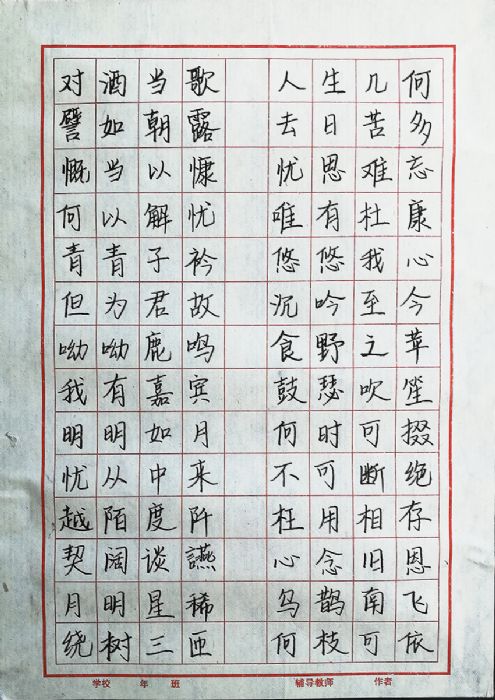 对酒当歌 人生几何
譬如朝露 去日苦多
慨当以慷 忧思难忘
何以解忧 唯有杜康
青青子衿 悠悠我心
但为君故 沉吟至今
呦呦鹿鸣 食野之苹
我有嘉宾 鼓瑟吹笙
明明如月 何时可掇
忧从中来 不可断绝
越陌度阡 枉用相存
契阔谈讌 心念旧恩
月明星稀 乌鹊南飞
绕树三匝 何枝可依
学校 年 班 辅导教师 作者